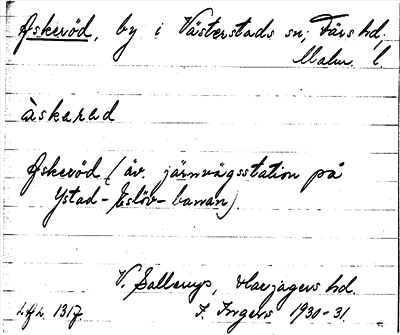 Askeröd, by i Västerstads sn, Färs hd,
Malm. l.
àskarød
Askeröd (äv. järnvägsstation på
Ystad-Eslöv-banan).
V. Sallerup, Harjagers hd.
I. Ingers 1930-31.
1317.